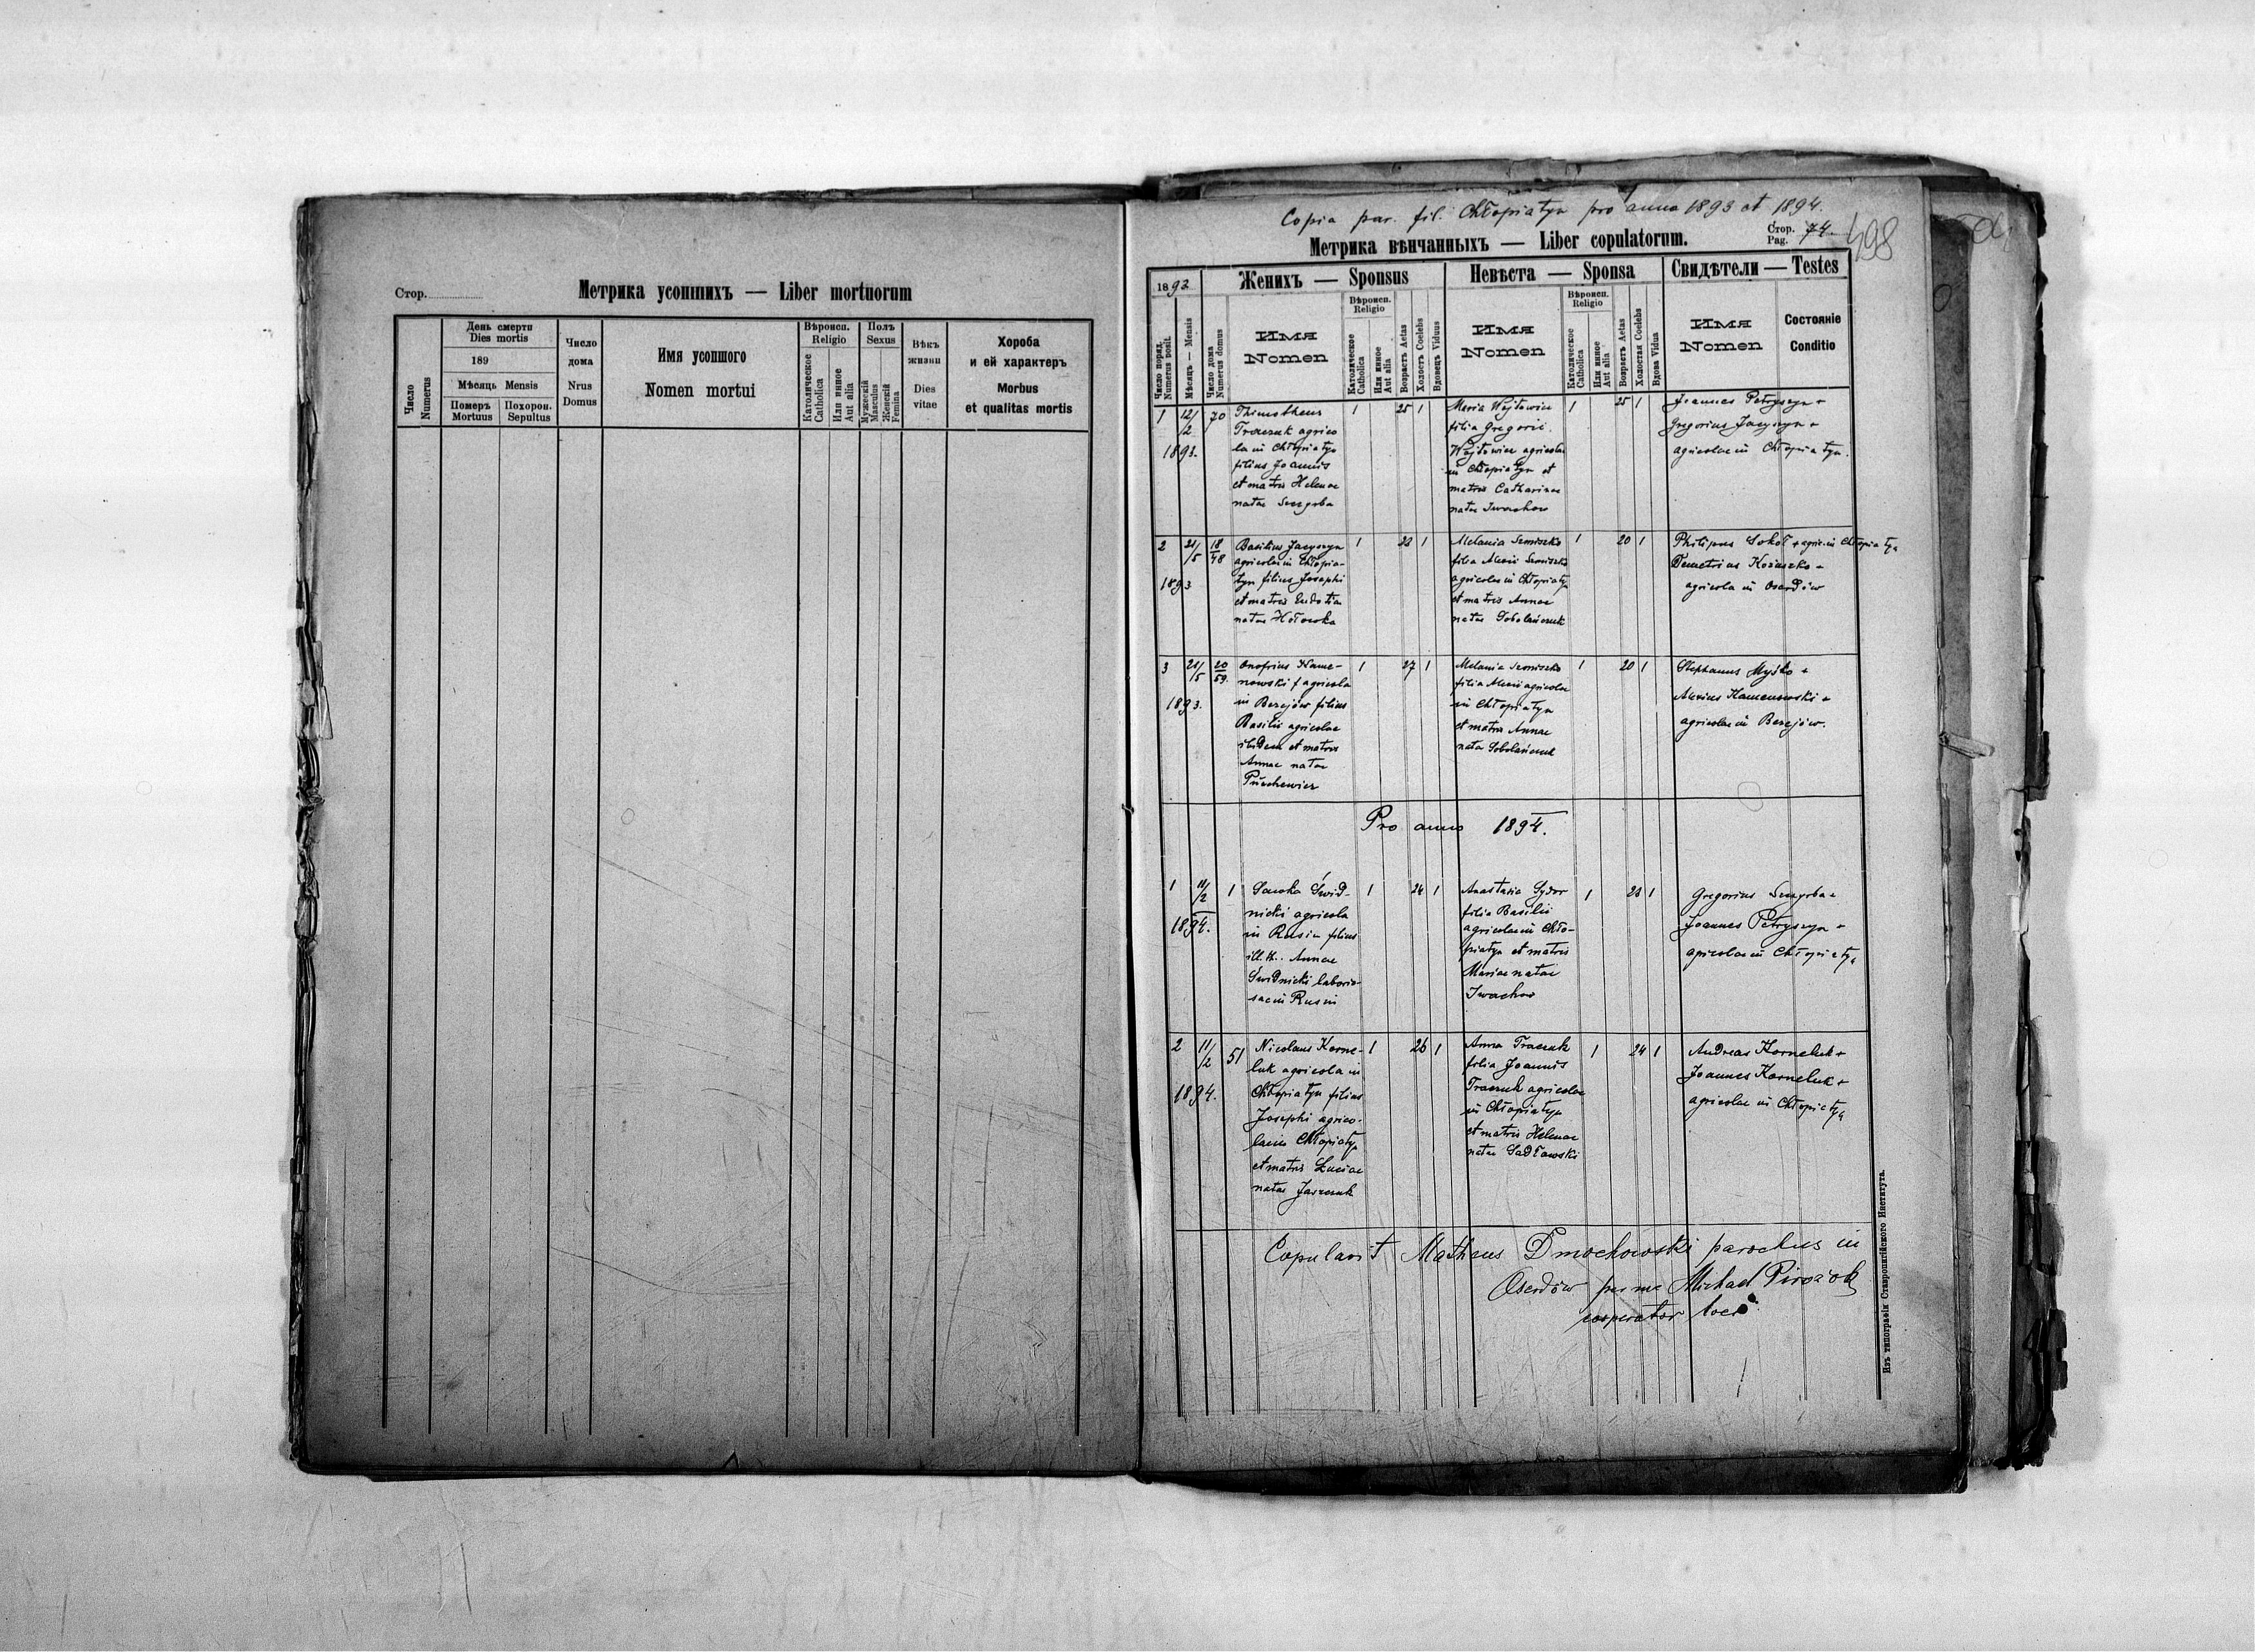 Стор.
Метрика усопшихъ — Liber mortuorum
Число
Numerus
День смерти
Dies mortis
189
Мѣсяць Mensis
Померъ
Mortuus
Похорон.
Sepultus
Число
дома
Nrus
Domus
Имя усопшого
Nomen mortui
Вѣроисп.
Religio
Католическое
Catholica
Или инное
Aut alia
Полъ
Sexus
Мужескій
Masculus
Женскій
Femina
Вѣкъ
жизни
Dies
vitae
Хороба
и ей характеръ
Morbus
et qualitas mortis
Copia par. fil. Chłopiatyn pro anno 1893 et 1894.
Метрика вѣнчанныхъ — Liber copulatorum.
Стор.
Pag. 74.
498
1893
Число поряд.
Numerus posit.
Мѣсяць — Mensis
Число дома
Numerus domus
Женихъ — Sponsus
Имя
Nomen
Вѣроисп.
Religio
Католическое
Catholica
Или инное
Aut alia
Возрастъ Aetas
Холостъ Coelebs
Вдовецъ Viduus
Невѣста — Sponsa
Имя
Nomen
Вѣроисп.
Religio
Католическое
Catholica
Или инное
Aut alia
Возрастъ Aetas
Холостая Coelebs
Вдова Vidua
Свидѣтели — Testes
Имя
Nomen
Состояніе
Conditio
1 12/2 1893. 70
Thimotheus
Traczuk agrico
la in Chłopiatyn
filius Joannis
et matris Helenae
natae Szczyrba
1 25 1
Maria Wojtowicz
filia Gregorii
Wojtowicz agricolae
in Chłopiatyn et
matris Catharinae
natae Iwachow
1 25 1
Joannes Petryszyn +
Gregorius Jacyszyn +
agricolae in Chłopiatyn.
2 21/5 1893 18/48
Basilius Jacyszyn
agricola in Chłopia-
tyn filius Josephi
et matris Eudotia
natae Hołowka
1 23 1
Melania Semiszko
filia Alexii Semiszko
agricolae in Chłopiatyn
et matris Annae
natae Sobolańczuk
1 20 1
Philipus Sokoł + agric. in Chłopiatyn
Demetrius Koziuszko +
agricola in Oserdów
3 21/5 1893. 20/59.
Onofrius Kame-
nowski f agricola
in Berejów filius
Basilii agricolae
ibidem et matris
Annae natae
1 27 1
Melania Semiszko
filia Alexii agricolae
in Chłopiatyn
et matris Annae
nata Sobolańczuk
1 20 1
Stephanus Myśko +
Alexius Kamenowski +
agricolae in Berejów.
Pro anno 1894.
1 11/2 1894. 1
Świd-
nicki agricola
in Rusin filius
ill. th. Annae
Świdnicki laborio-
sae in Rusin
1 24 1
Anastasia Sydor
filia Basilii
agricolae in Chło-
piatyn et matris
Mariae natae
Iwachow
1 23 1
Gregorius Szczyrba +
Joannes Petryszyn +
agricolae in Chłopiatyn
2 11/2 1894. 51
Nicolaus Korne-
luk agricola in
Chłopiatyn filius
Josephi agrico-
lae in Chłopiatyn
et matris Luciae
natae Jaszczuk
1 26 1
Anna Traczuk
filia Joannis
Traczuk agricolae
in Chłopiatyn
et matris Helenae
natae Sadławski
1 24 1
Andreas Korneluk +
Joannes Korneluk +
agricolae in Chłopiatyn
Copulavit Matheus Dmochowski parochus in
Oserdów per me Michael Pirożok
cooperator loci
Изъ типографіи Ставропигійского Института.